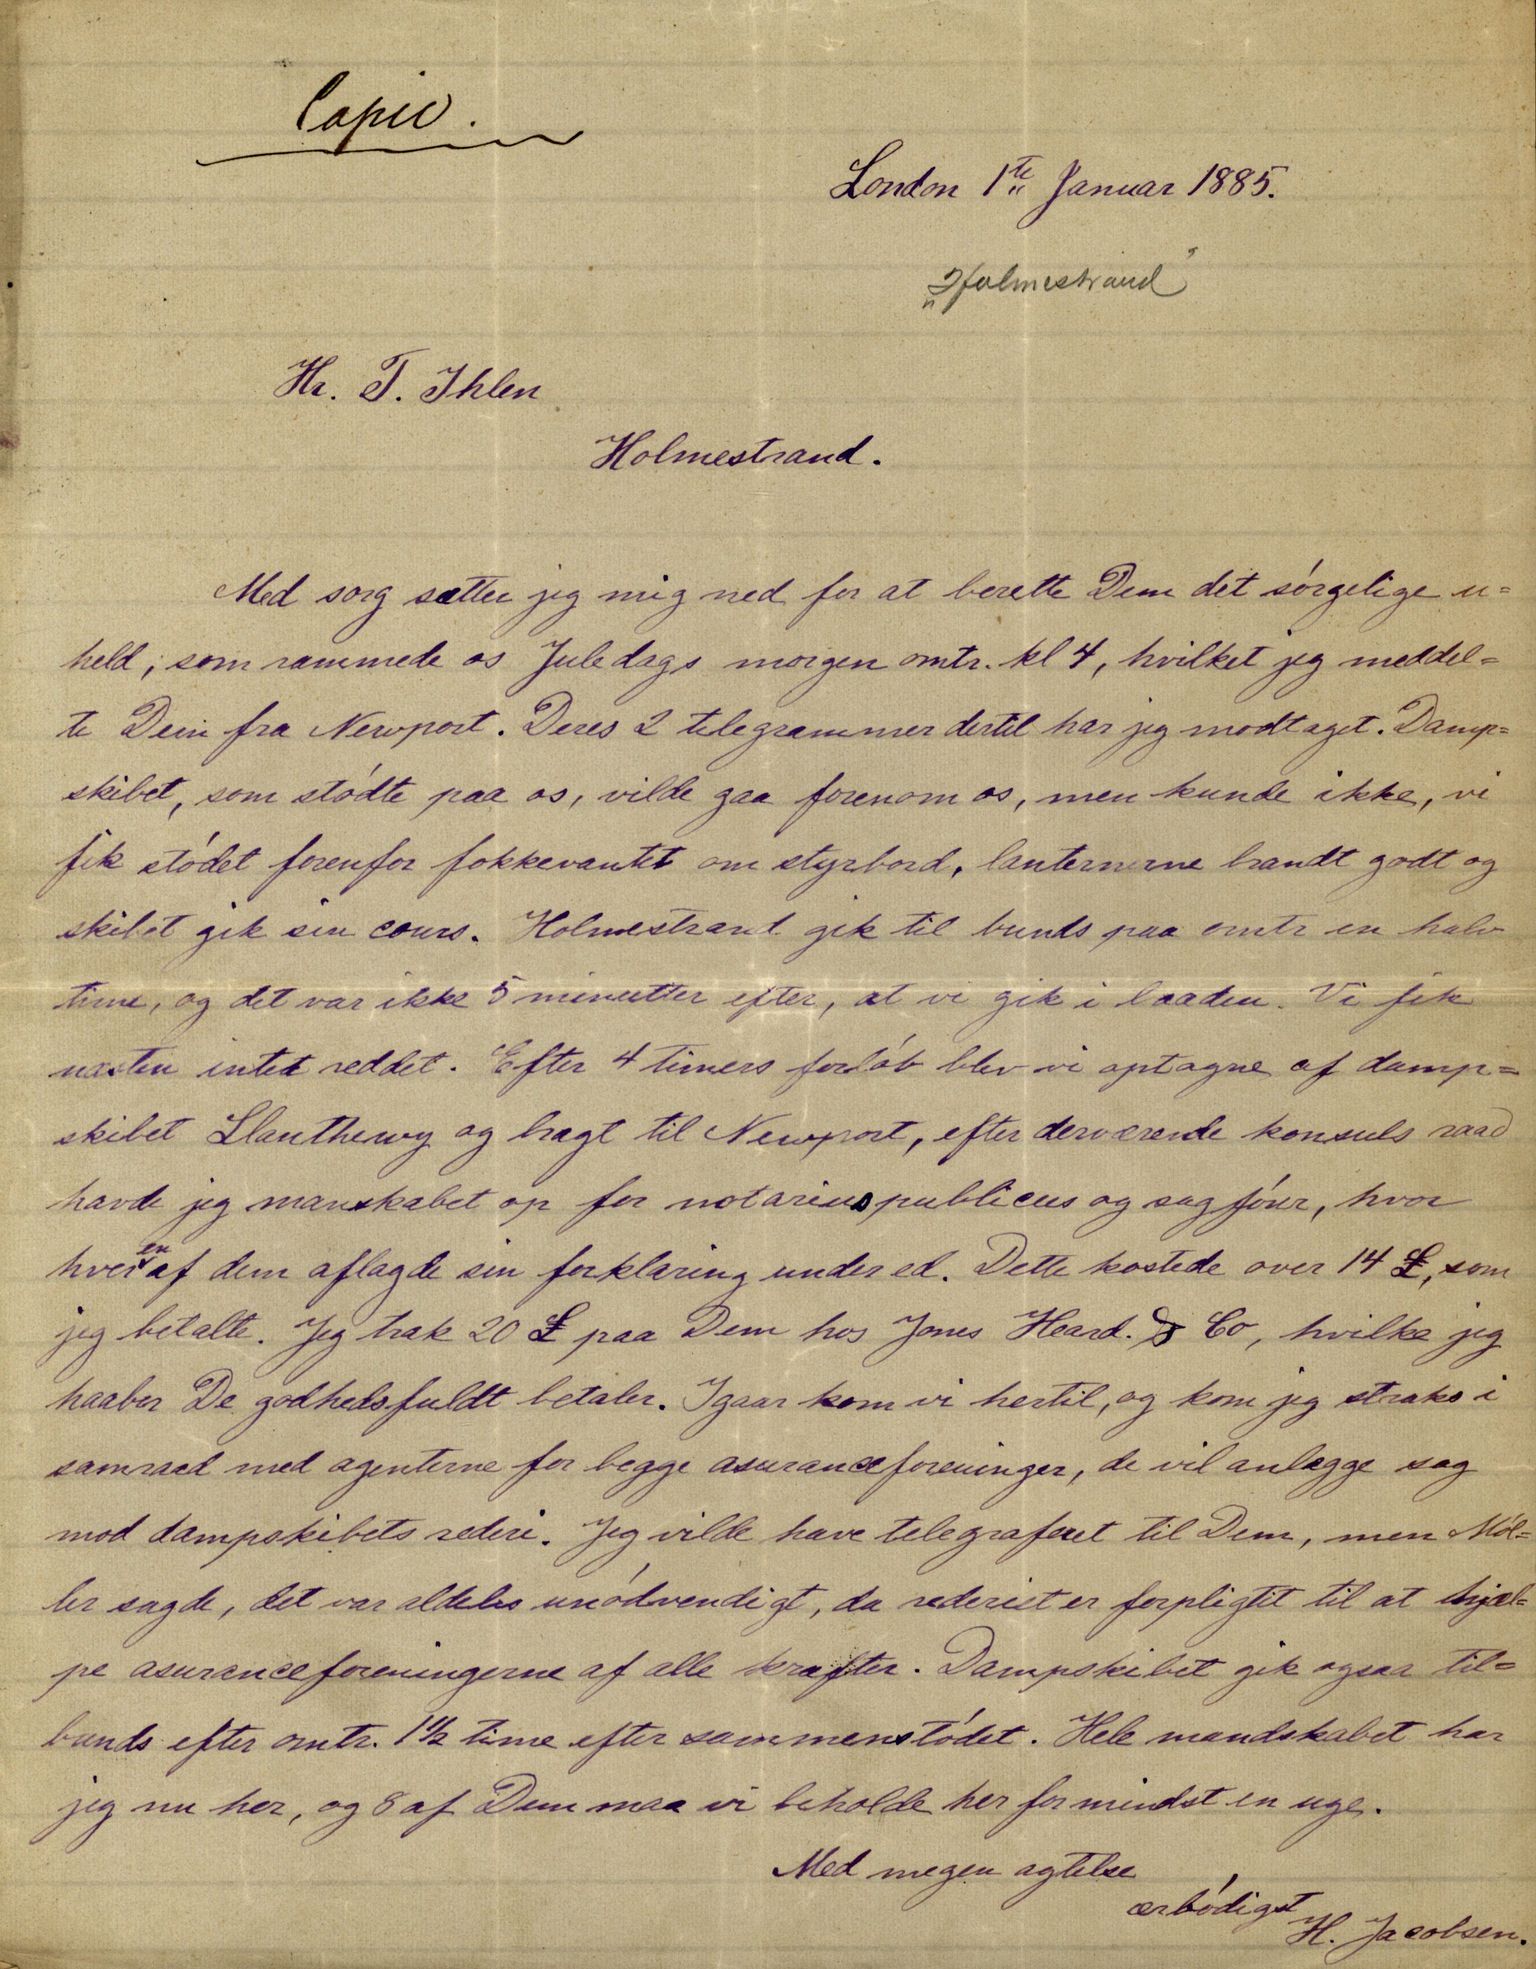 Copie.
London 1te Januar 1885.
"Holmestrand"
Hr. T. Ihlen
Holmestrand.
Med sorg sætter jeg mig ned for at berette Dem det sórgelige u=
held, som rammede os Juledags morgen omtr. kl 4, hvilket jeg meddel=
te Dem fra Newport. Deres 2 telegrammer dertil har jeg modtaget. Damp=
skibet, som stódte paa os, vilde gaa forenom os, men kunde ikke, vi
fik stódet forenfor fokkevantet om styrbord, lanternerne brandt godt og
skibet gik sin cours. Holmestrand gik til bunds paa omtr en halv
time, og det var ikke 5 minutter efter, at vi gik i baaden. Vi fik
næsten intet reddet. Efter 4 timers forlób blev vi optagne af damp=
skibet Llanthewy og bragt til Newport, efter derværende konsuls raad
havde jeg manskabet op for notarius publicus og sagfórer, hvor
hver en af dem aflagde sin forklaring under ed. Dette kostede over 14 £, som
jeg betalte. Jeg trak 20 £ paa Dem hos Jones Heard. & Co, hvilke jeg
haaber De godhedsfuldt betaler. Igaar kom vi hertil, og kom jeg straks i
samraad med agenterne for begge asuranceforeninger, de vil anlægge sag
mod dampskibets rederi. Jeg vilde have telegraferet til Dem, men Mól=
ler sagde, det var aldeles unódvendigt, da rederiet er forpligtet til at hjæl=
pe asuranceforeningerne af alle kræfter. Dampskibet gik ogsaa til=
bunds efter omtr. 1 1/2 time efter sammenstódet. Hele mandskabet har
jeg nu her, og 8 af Dem maa vi beholde her for mindst en uge.
Med megen agtelse
ærbódigst
H. Jacobsen.